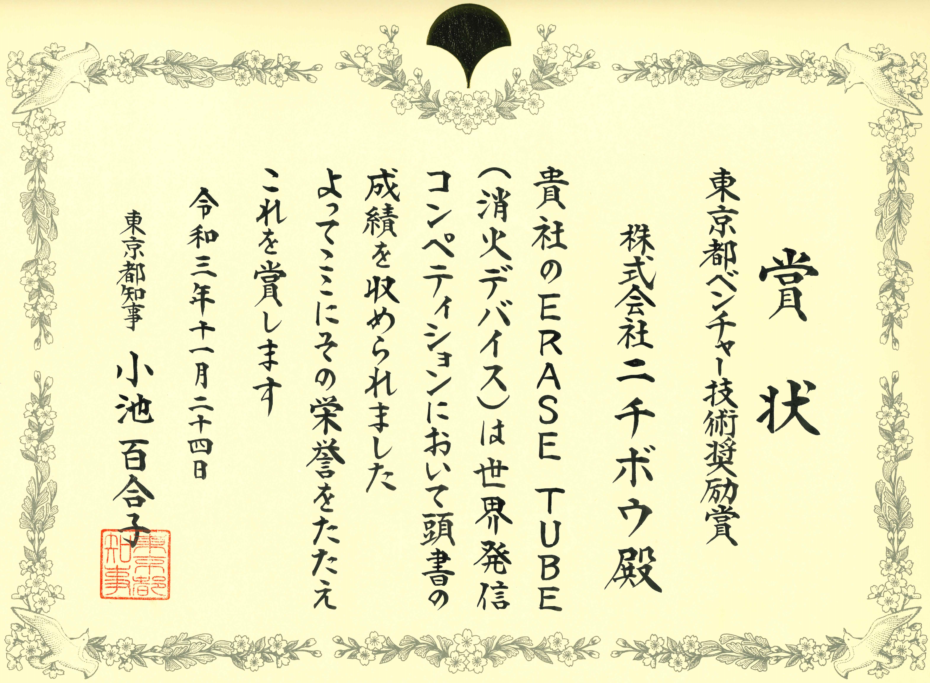 賞状
東京都ベンチャー技術奨励賞
株式会社ニチボウ殿
貴社のERASE TUBE
(消火デバイス)は世界発信
コンペティションにおいて頭書の
成績を収められました
よってここにその栄誉をたたえ
これを賞します
令和三年十一月二十四日
東京都知事 小池百合子
東京都
知事